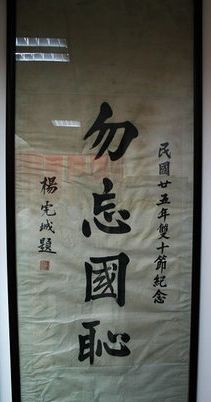 民國廿五年雙十節紀念
勿忘國恥
楊虎城題